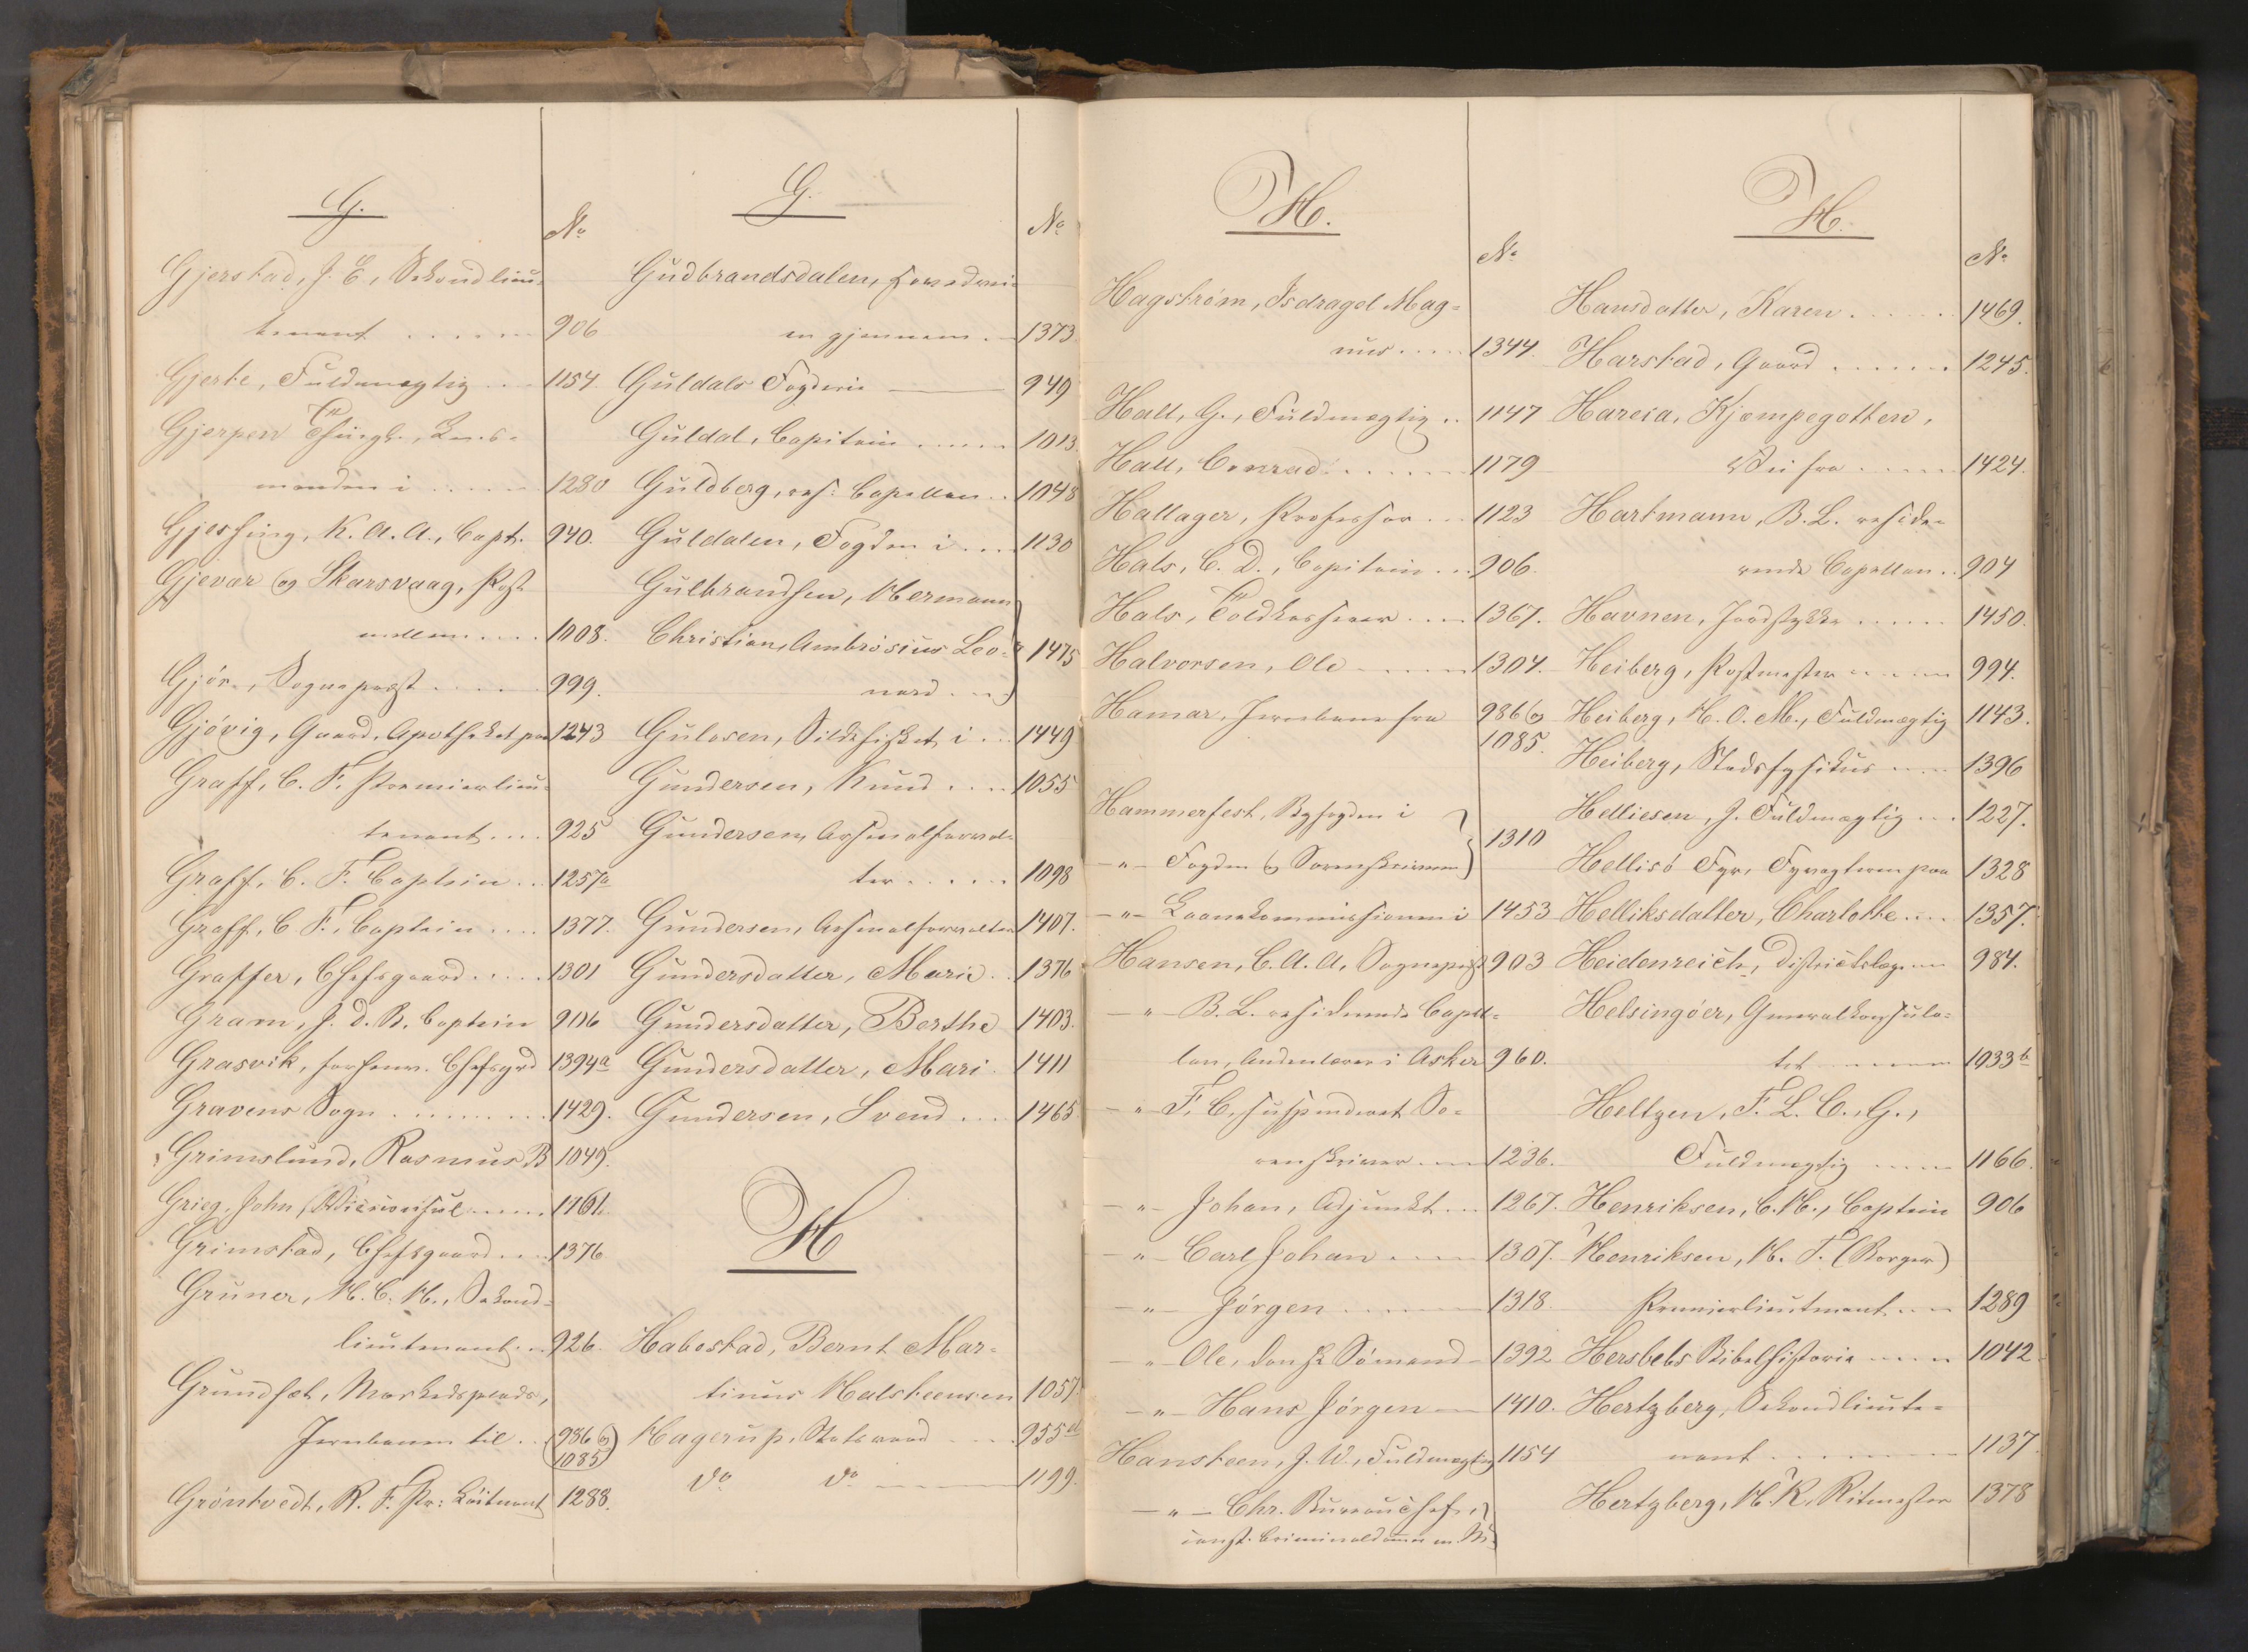 G.
No
Gjerstad, J. E, Sekondlieu-
tenant ..... 906
Gjerte, Fuldmægtig ... 1154
Gjerpen Thingl., Lens-
manden i ..... 1280
Gjessing, K. A. A., Capt. 940.
Gjevær og Skarsvaag, Post
mellem .... 1008.
Gjör, Sogneprest ..... 999.
Gjövig, Gaard, Apotheket paa 1243
Graff, C. F. Premierlieu-
tenant ... 925
Graff, C. F. Captein .. 1257a
Graff, C. F., Captein .... 1377.
Graffer, Chefsgaard ..... 1301
Gram, J. D. B. Captein 906
Grasvik, forhenv. Chefsgrd 1394a
Gravens Sogn ........ 1429.
Grimslund, Rasmus B 1049.
Grieg, John, Viceconsul .... 1161.
Grimstad, Chefsgaard .... 1376
Grüner, H. C. H., Sekond-
lieutenant .. 926
Grundset, Markedsplads,
Jernbanen til .. 986 og
1085
Gröntvedt, R. F. Pr: Löitnant 1288.
G.
No
Gudbrandsdalen, Hovedvei-
en gjennem .. 1373
Guldals Fogderie 949
Guldal, Capitain ..... 1013
Guldberg, res: Capellan .. 1048
Guldalen, Fogden i .... 1130
Gulbrandsen, Hermann
Christian, Ambrosius Leo- 1475
nard ...
Gulosen, Sildefisket i ... 1449
Gundersen, Knud .... 1055
Gundersen, Arsenalforval-
ter ..... 1098
Gundersen, Arsenalforvalter 1407.
Gundersdatter, Marie .. 1376
Gundersdatter, Berthe 1403.
Gundersdatter, Mari . 1411
Gundersen, Svend .... 1465
H
Habostad, Bernt Mar-
tinus Halsteensen 1057
Hagerup, Statsraad .... 955d
do do 1199.
H.
No
Hagström, Isdragel Mag-
nus .... 1344.
Hall, G., Fuldmægtig .. 1147
Hall, Conrad ...... 1179
Hallager, Professor ... 1123
Hals, C. D., Capitain ... 906
Hals, Toldkasserer .... 1367.
Halvorsen, Ole 1304.
Hamar, Jernbane fra 986 og
1085.
Hammerfest, Byfogden i
-"- Fogden og Sorenskriveren 1310
-"- Laanekommissionen i 1453
Hansen, C. A. A, Sogneprest 903
-"- B. L. residerende Capel-
lan, Andenlærer i Asker 960.
-"- F. C, suspenderet So-
renskriver .... 1236.
-"- Johan, Adjunkt ... 1267.
-"- Carl Johan .... 1307.
-"- Jörgen ...... 1318
-"- Ole, dansk Sömand 1392
-"- Hans Jörgen 1410.
Hansteen, J. W., Fuldmægtig 1154
-"- Chr. Bureauchef,
H.
No
Hansdatter, Karen ...... 1469.
Harstad, Gaard ...... 1245.
Hareia, Kjæmpegotten,
Vei fra ..... 1424.
Hartmann, B. L. reside-
rende Capellan .. 904
Havnen, Jordstykke ...... 1450.
Heiberg, Postmester ..... 994.
Heiberg, H. O. M., Fuldmægtig 1143.
Heiberg, Stadsfysikus .... 1396
Helliesen, J. Fuldmægtig ... 1227.
Hellisö Fyr, Fyrvogteren paa 1328
Helliksdatter, Charlotte .... 1357.
Heidenreich, Districtslæge ... 984.
Helsingöer, Generalkonsula-
tet ..... 1033b
Heltzen, F. L. C., G.,
Fuldmægtig .... 1166.
Henriksen, C. H., Captein 906
Henriksen, H. F. (Borger)
Premierlieutenant ... 1289
Hersbebs Bibelhistorie .... 1042
Hertzberg, Sekondlieute-
nant ....... 1137.
Hertzberg, H. K, Ritmester 1378